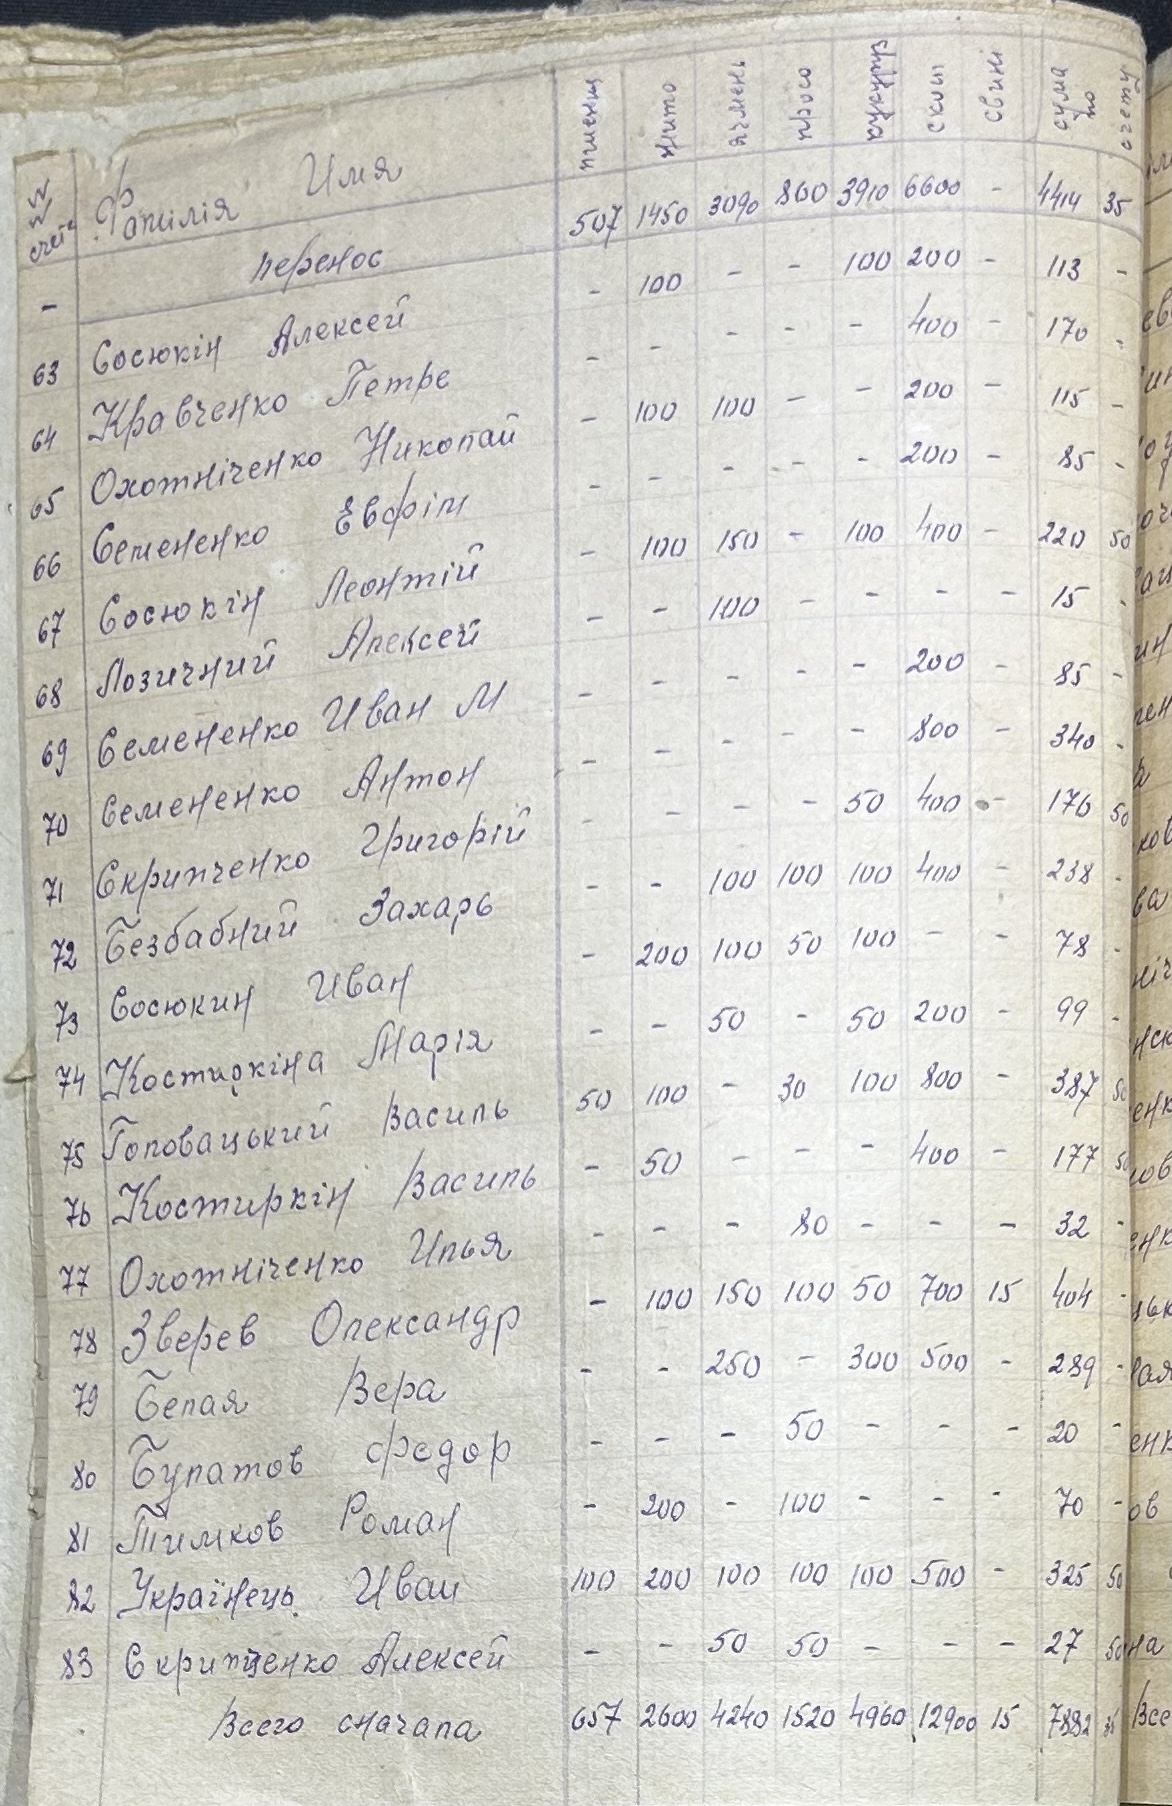 №№ счета Фамілія Имя пшениця жито ячмень просо кукуруз скот свині сума по счету
- перенос 507 1450 3090 860 3910 6600 - 4414 35
63 Сосюкін Алексей - 100 - - 100 200 - 113 -
64 Кравченко Петре - - - - - 400 - 170 -
65 Охотніченко Николай - 100 100 - - 200 - 115 -
66 Семененко Евфрім - - - - - 200 - 85 -
67 Сосюкін Леонтій - 100 150 - 100 400 - 220 50
68 Лозичний Алексей - - 100 - - - - 15 -
69 Семененко Иван М - - - - - 200 - 85 -
70 Семененко Антон - - - - - 800 - 340 -
71 Скрипченко Григорій - - - 50 400 - 176 50
72 Безбабний Захарь - - 100 100 100 400 - 238 -
73 Сосюкин Иван - 200 100 50 100 - - 78 -
74 Костиркіна Марія - - 50 - 50 200 - 99 -
75 Головацький Василь 50 100 - 30 100 800 - 387 50
76 Костиркін Василь - 50 - - - 400 - 177 50
77 Охотніченко Илья - - - 80 - - - 32 -
78 Зверев Олександр - 100 150 100 50 700 15 404 -
79 Белая Вера - - 250 - 300 500 - 289 -
80 Булатов Федор - - - 50 - - - 20 -
81 Тимков Роман - 200 - 100 - - - 70 -
82 Українець Иван 100 200 100 100 100 500 - 325 50
83 Скрипченко Алексей - - 50 50 - - - 27 50
Всего сначала 657 2600 4240 1520 4960 12900 15 7882